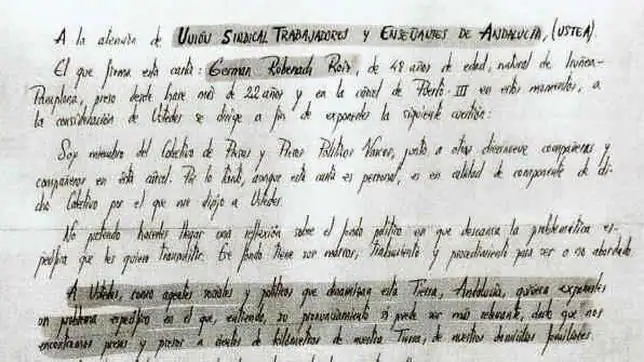 A la atención de UNIÓN SINDICAL TRABAJADORES Y ENSEÑANTES DE ANDALUCÍA, (USTEA).
El que firma esta carta: German Rubenach Roiz, de 48 años de edad, natural de Iruñea-
Pamplona, preso desde hace más de 22 años y en la cárcel de Puerto-III en estos momentos, a
la consideración de Ustedes se dirige a fin de exponerles la siguiente cuestión:
Soy miembro del Colectivo de Presas y Presos Políticos Vascos, junto a otras diecinueve compañeras y
compañeros en esta cárcel. Por lo tanto, aunque esta carta es personal, es en calidad de componente de di-
cho Colectivo por el que me dirijo a Ustedes.
No pretendo hacerles llegar una reflexión sobre el fondo político en que descansa la problemática es-
pecífica que les quiero transmitir. Ese fondo tiene sus marcos, tratamiento y procedimiento para ser o no abordado.
A Ustedes, como agentes sociales y políticos que dinamizan esta Tierra, Andalucía, quisiera exponerles
un problema específico en el que, entiendo, su pronunciamiento sí puede ser más relevante, dado que nos
encontramos presas y presos a cientos de kilómetros de nuestra Tierra, de nuestros domicilios familiares.